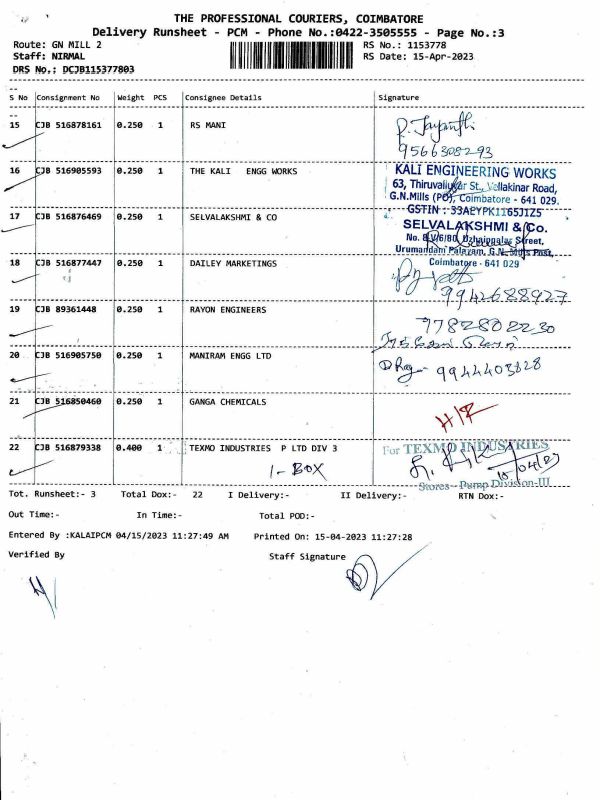 THE PROFESSIONAL COURIERS, COIMBATORE
Delivery Runsheet - PCM - Phone No.:0422-3505555 - Page No.:3
Route: GN MILL 2 RS No.: 1153778
Staff: NIRMAL RS Date: 15-Apr-2023
DRS No.: DCJB115377803
S No Consignment No Weight PCS Consignee Details Signature
15 CJB 516878161 0.250 1 RS MANI
9566308293
16 CJB 516905593 0.250 1 THE KALI ENGG WORKS
KALI ENGINEERING WORKS
63, Thiruvalluvar St., Vellakinar Road,
G.N.Mills (PO), Coimbatore - 641 029.
GSTIN : 33AEYPK1165J1Z5
17 CJB 516876469 0.250 1 SELVALAKSHMI & CO
SELVALAKSHMI & Co.
Street,
Urumandam Palayam, G.N. Mills Post,
Coimbatore - 641 029
18 CJB 516877447 0.250 1 DAILEY MARKETINGS
9942688927
19 CJB 89361448 0.250 1 RAYON ENGINEERS
7782802230
20 CJB 516905750 0.250 1 MANIRAM ENGG LTD
9944403828
21 CJB 516850460 0.250 1 GANGA CHEMICALS
H/R
22 CJB 516879338 0.400 1 TEXMO INDUSTRIES P LTD DIV 3
1 - BOX
For TEXMO INDUSTRIES
15/04/23
Stores - Pump Division-III
Tot. Runsheet:- 3 Total Dox:- 22 I Delivery:- II Delivery:- RTN Dox:-
Out Time:- In Time:- Total POD:-
Entered By :KALAIPCM 04/15/2023 11:27:49 AM Printed On: 15-04-2023 11:27:28
Verified By Staff Signature